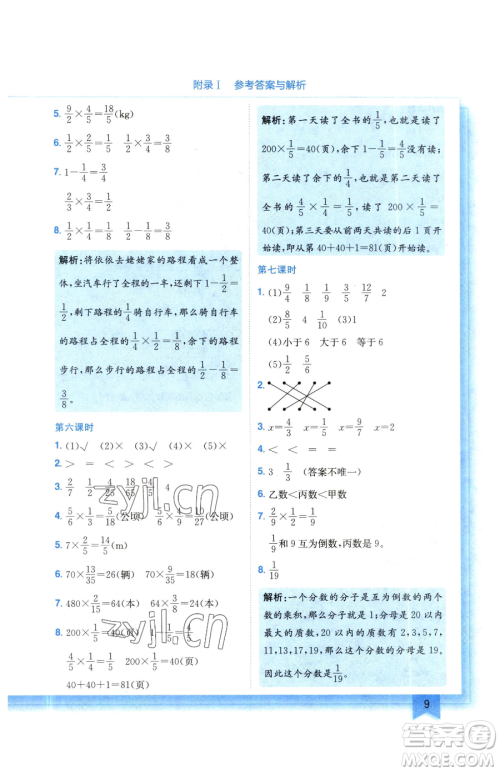 附录Ⅰ 参考答案与解析
5. 9/2×4/5=18/5(kg)
6. 1/2×1/2=1/4 1/4×3/2=3/8
7. 1-1/4=3/4
2/3×3/4=1/2
8. 1/2×1/4=1/8 1/2-1/8=3/8
解析:将依依去姥姥家的路程看成一个整
体,坐汽车行了全程的一半,还剩全程的
1/2,剩下路程的1/4骑自行车,那么骑自行车
的路程占全程的1/2×1/4=1/8,其余的路程
步行,那么步行的路程占全程的1/2-1/8=
3/8。
第六课时
1. (1)√ (2)× (3)× (4)√ (5)×
2. > > = < = >
3. 2/7
4.
5. 7×2/15=14/15(m)
6. 70×13/35=26(辆) 70×11/35=22(辆)
7. 480×2/15=64(本) 480×2/15=64(本)
8. 200×1/5=40(页) 1-1/5=4/5
4/5×1/4=1/5 200×1/5=40(页)
40+40+1=81(页)
解析:第一天读了全书的1/5,读了
200×1/5=40(页);余下1-1/5=4/5没有读;
第二天读了余下的1/4,第二天读了
全书的4/5×1/4=1/5,读了200×1/5=
40(页);第三天要从前两天共读的后
1页开始读,即从40+40+1=81(页)开始读。
第七课时
1. (1)9/4 1/8 10/3 12/7 2
(2)8/5 4 1/10 (3)1
(4)小于6 大于6 等于6
(5)1/2 5/6
3. x=4/3 x=8/9 x=9/5 x=2
4. < < = >
5. 3 1/3 (答案不唯一)
6. 乙数<丙数<甲数
7. 2/9×1/2=1/9
1/9和9互为倒数,丙数是1/9。
8. 1/19
解析:一个分数的分子是互为倒数的两个
数的乘积,那么分子就是1;分母是20以内
最大的质数,20以内的质数有2,3,5,7,
11,13,17,19,那么最大的质数就是19。
因此,这个分数是1/19。
zyjl.cn
zyjl.cn
9
答案圈
MXQE.COM